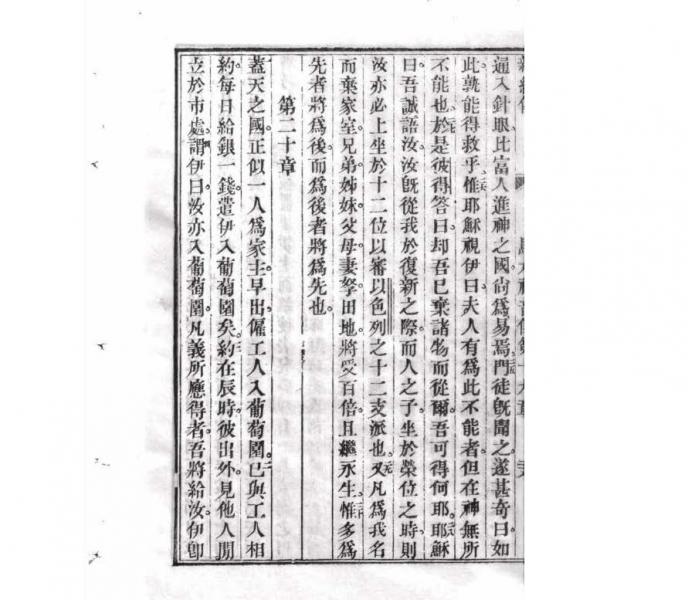 通入針眼比富人進神之國尚爲易焉門徒旣聞之遂甚奇曰如
此孰能得救乎惟耶穌視伊曰夫人有爲此不能者但在神無所
不能也於是彼得答曰却吾已棄諸物而從爾吾可得何耶耶穌
曰吾誠語汝汝旣從我於復新之際而人之子坐於榮位之時則
汝亦必上坐於十二位以審以色列之十二支派也又凡爲我名
而棄家室兄弟姊妹父母妻孥田地將受百倍且繼永生惟多爲
先者將爲後而爲後者將爲先也
第二十章
蓋天之國正似一人爲家主早出僱工人入葡萄園已與工人相
約每日給銀一錢遣伊入葡萄園矣約在辰時彼出外見他人閒
立於市處謂伊曰汝亦入葡萄園凡義所應得者吾將給汝伊卽